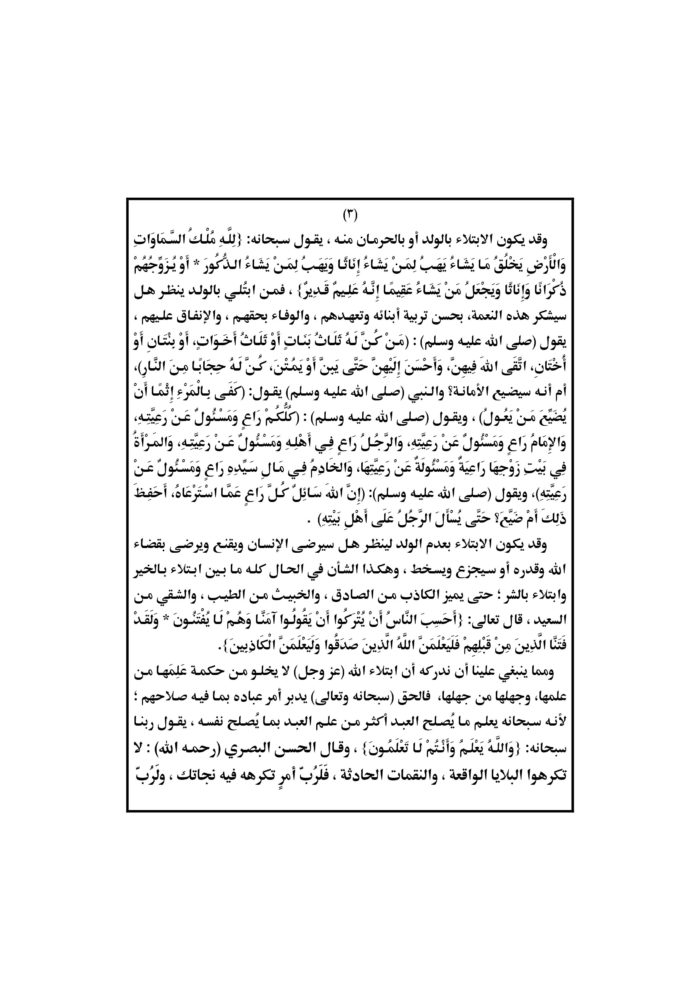 (٣)
وقد يكون الابتلاء بالولد أو بالحرمان منه ، يقول سبحانه: {لِلَّهِ مُلْكُ السَّمَاوَاتِ
وَالْأَرْضِ يَخْلُقُ مَا يَشَاءُ يَهَبُ لِمَنْ يَشَاءُ إِنَاثًا وَيَهَبُ لِمَنْ يَشَاءُ الذُّكُورَ * أَوْ يُزَوِّجُهُمْ
ذُكْرَانًا وَإِنَاثًا وَيَجْعَلُ مَنْ يَشَاءُ عَقِيمًا إِنَّهُ عَلِيمٌ قَدِيرٌ} ، فمن ابتُلي بالولد ينظر هل
سيشكر هذه النعمة، بحسن تربية أبنائه وتعهدهم ، والوفاء بحقهم ، والإنفاق عليهم ،
يقول (صلى الله عليه وسلم) : (مَنْ كُنَّ لَهُ ثَلَاثُ بَنَاتٍ أَوْ ثَلَاثُ أَخَوَاتٍ، أَوْ بِنْتَانِ أَوْ
أُخْتَانِ، اتَّقَى اللهَ فِيهِنَّ، وَأَحْسَنَ إِلَيْهِنَّ حَتَّى يَبِنَّ أَوْ يَمُتْنَ، كُنَّ لَهُ حِجَابًا مِنَ النَّارِ)،
أم أنه سيضيع الأمانة؟ والنبي (صلى الله عليه وسلم) يقول: (كَفَى بِالْمَرْءِ إِثْمًا أَنْ
يُضَيِّعَ مَنْ يَعُولُ) ، ويقول (صلى الله عليه وسلم) : (كُلُّكُمْ رَاعٍ وَمَسْئُولٌ عَنْ رَعِيَّتِهِ،
وَالإِمَامُ رَاعٍ وَمَسْئُولٌ عَنْ رَعِيَّتِهِ، وَالرَّجُلُ رَاعٍ فِي أَهْلِهِ وَمَسْئُولٌ عَنْ رَعِيَّتِهِ، وَالمَرْأَةُ
فِي بَيْتِ زَوْجِهَا رَاعِيَةٌ وَمَسْئُولَةٌ عَنْ رَعِيَّتِهَا، وَالخَادِمُ فِي مَالِ سَيِّدِهِ رَاعٍ وَمَسْئُولٌ عَنْ
رَعِيَّتِهِ)، ويقول (صلى الله عليه وسلم): (إِنَّ اللهَ سَائِلٌ كُلَّ رَاعٍ عَمَّا اسْتَرْعَاهُ، أَحَفِظَ
ذَلِكَ أَمْ ضَيَّعَ؟ حَتَّى يُسْأَلَ الرَّجُلُ عَلَى أَهْلِ بَيْتِهِ) .
وقد يكون الابتلاء بعدم الولد لينظر هل سيرضى الإنسان ويقنع ويرضى بقضاء
الله وقدره أو سيجزع ويسخط ، وهكذا الشأن في الحال كله ما بين ابتلاء بالخير
وابتلاء بالشر ؛ حتى يميز الكاذب من الصادق ، والخبيث من الطيب ، والشقي من
السعيد ، قال تعالى: {أَحَسِبَ النَّاسُ أَنْ يُتْرَكُوا أَنْ يَقُولُوا آمَنَّا وَهُمْ لَا يُفْتَنُونَ * وَلَقَدْ
فَتَنَّا الَّذِينَ مِنْ قَبْلِهِمْ فَلَيَعْلَمَنَّ اللَّهُ الَّذِينَ صَدَقُوا وَلَيَعْلَمَنَّ الْكَاذِبِينَ}.
ومما ينبغي علينا أن ندركه أن ابتلاء الله (عز وجل) لا يخلو من حكمة عَلِمَها من
علمها، وجهلها من جهلها، فالحق (سبحانه وتعالى) يدبر أمر عباده بما فيه صلاحهم ؛
لأنه سبحانه يعلم ما يُصلح العبد أكثر من علم العبد بما يُصلح نفسه ، يقول ربنا
سبحانه: {وَاللَّهُ يَعْلَمُ وَأَنْتُمْ لَا تَعْلَمُونَ} ، وقال الحسن البصري (رحمه الله) : لا
تكرهوا البلايا الواقعة ، والنقمات الحادثة ، فَلَرُبّ أمرٍ تكرهه فيه نجاتك ، ولَرُبّ